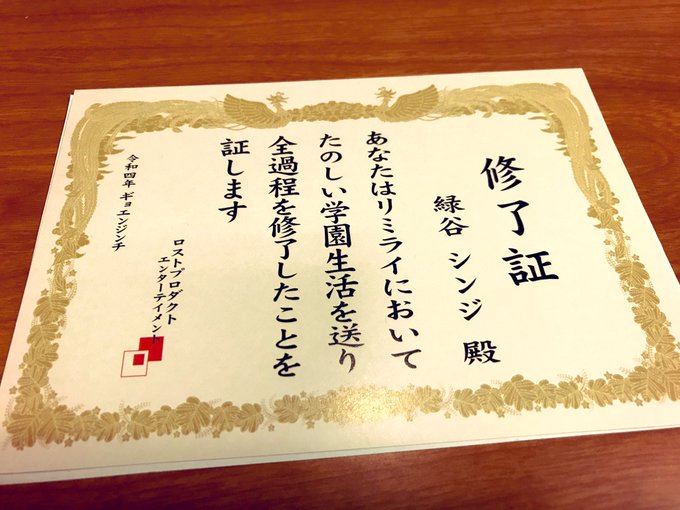 修了証
緑谷 シンジ 殿
あなたはリミライにおいて
たのしい学園生活を送り
全過程を修了したことを
証します
令和四年 ギョエンジンチ
ロストプロダクト
エンターテイメント